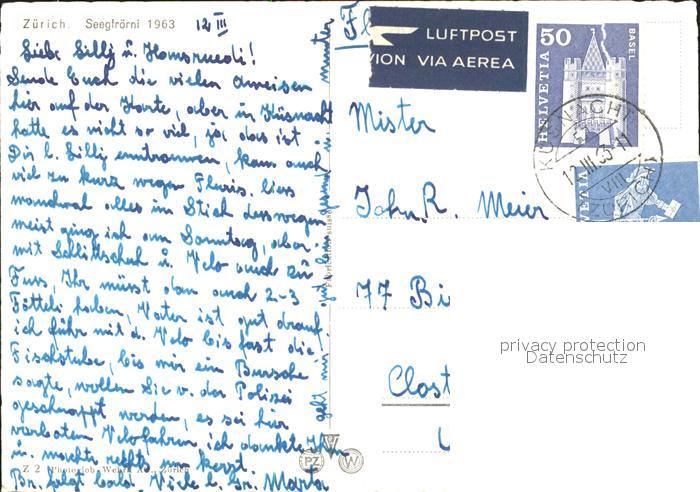 Zürich. Seegfrörni 1963 12 III
Liebe Lilly u. Hansruedi!
Sende Euch die vielen Ameisen
hier auf der Karte, aber in Küsnacht
hatte es nicht so viel, ja, das ist
Dir l. Lilly kam auch
viel zu kurz wegen
manchmal alles im Stich deswegen
meist ging ich am Sonntag, aber
mit Schlittschuh u. Velo auch zu
Fuss, Ihr müsst dann auch 2-3
haben, Vater ist gut drauf
ich fuhr mit d. Velo bis fast die
Fischstube, bis mir ein Bursche
sagte, wollen Sie v. der Polizei
geschnappt werden, es sei hier
verboten Velofahren, ich dankte Ihm
u. machte rechts um kerzt.
Br. folgt bald Viele l. Gr. Marta
geht mir gut
Z 2 Photoglob-Wehrli A.G., Zürich
PZ W
LUFTPOST
VION VIA AEREA
HELVETIA 50 BASEL
KÜSNACHT (ZÜRICH)
12.III.63-11
VIII
HELVETIA
Mister
John R. Meier
77 Bi
Clost
privacy protection
Datenschutz